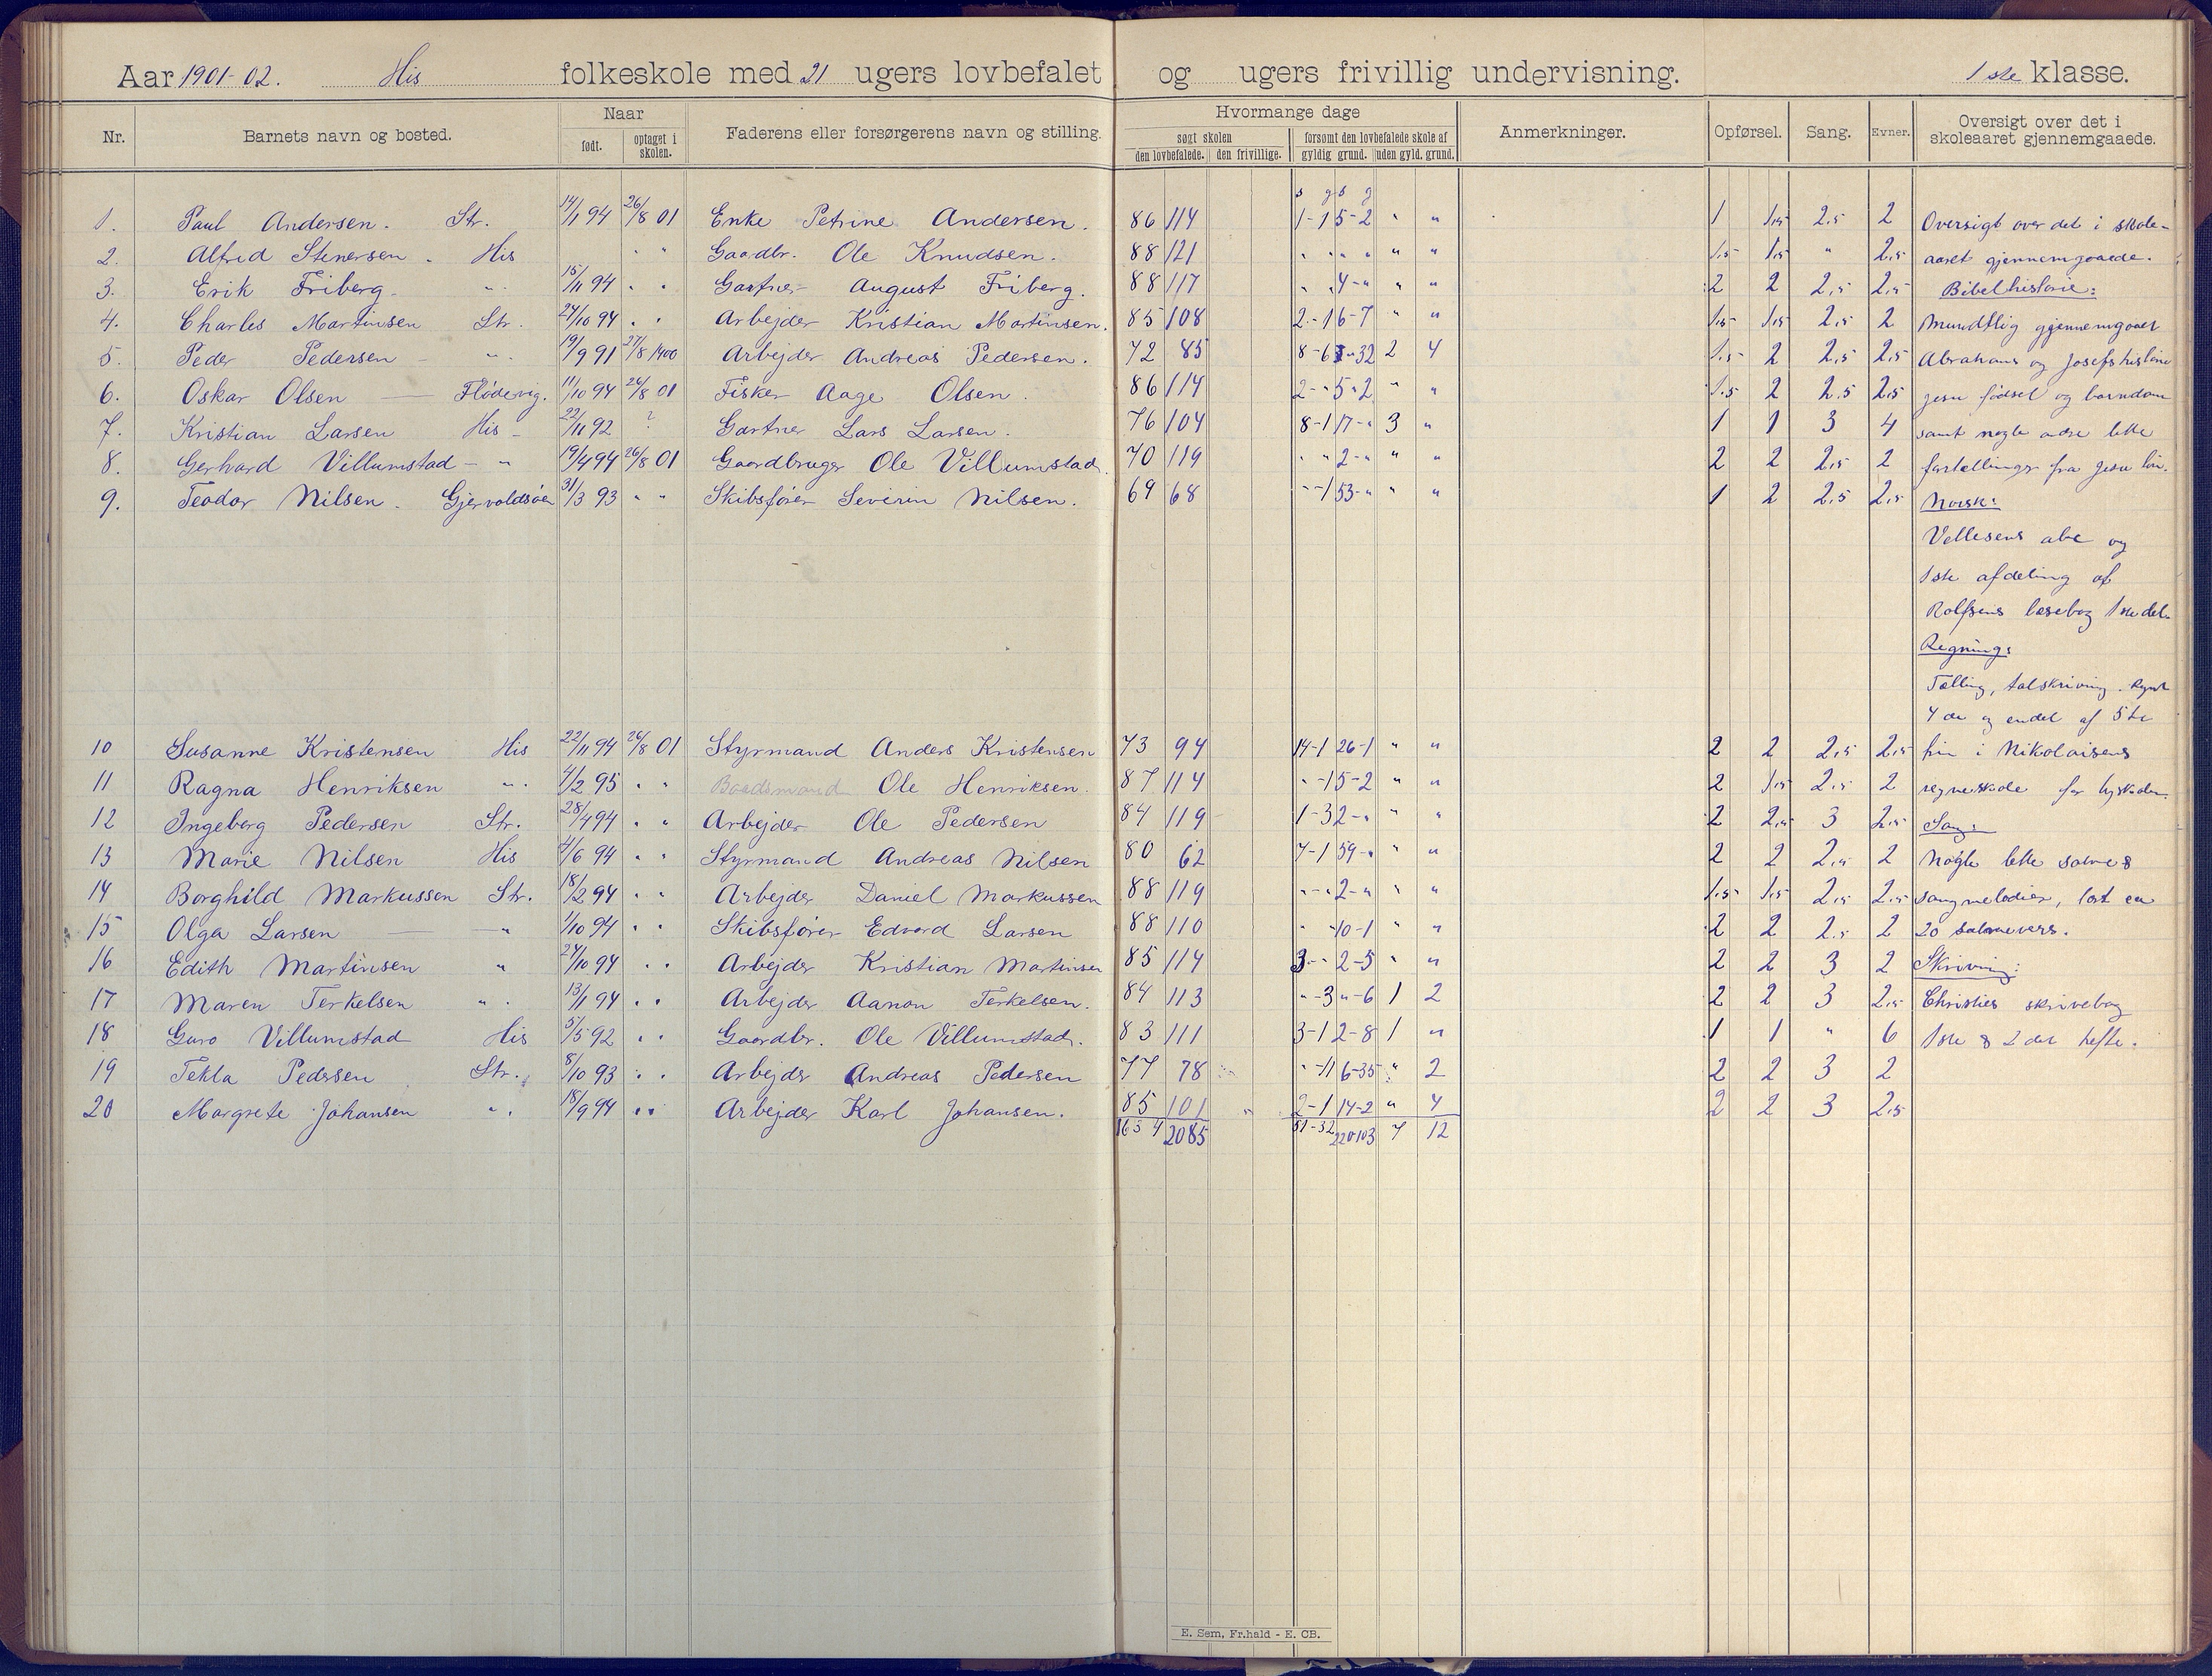 Aar 1901-02. His folkeskole med 21 ugers lovbefalet og ugers frivillig undervisning. 1ste klasse.
Nr. Barnets navn og bosted. Naar født. optaget i skolen. Faderens eller forsørgerens navn og stilling. Hvormange dage søgt skolen den lovbefalede. den frivillige. forsømt den lovbefalede skole af gyldig grund. uden gyld. grund. Anmerkninger. Opførsel. Sang. Evner. Oversigt over det i skoleaaret gjennemgaaede.
s g s g
1. Paul Andersen. Str. 14/1 94 26/8 01 Enke Petrine Andersen. 86 114 1-1 5-2 " " 1 1,5 2,5 2 Oversigt over det i skole-
2. Alfred Stenersen. His " " Gaardbr. Ole Knudsen. 88 121 " " " " " " 1,5 1,5 " 2,5 aaret gjennemgaaede.
3. Erik Friberg. " 15/11 94 " " Gartner August Friberg. 88 117 " " 4-" " " 2 2 2,5 2,5 Bibelhistorie:
4. Charles Martinsen Str. 24/10 94 " " Arbejder Kristian Martinsen. 85 108 2-1 6-7 " " 1,5 1,5 2,5 2 Mundtlig gjennemgaaet
5. Peder Pedersen " 19/9 91 27/8 1900 Arbejder Andreas Pedersen. 72 85 8-6 -32 2 4 1,5 2 2,5 2,5 Abrahams og Josefs historie
6. Oskar Olsen Flødevig. 11/10 94 26/8 01 Fisker Aage Olsen. 86 114 2-" 5-2 " " 1,5 2 2,5 2,5 Jesu fødsel og barndom
7. Kristian Larsen His 22/11 92 ? Gartner Lars Larsen. 76 104 8-1 17-" 3 " 1 1 3 4 samt nogle andre lette
8. Gerhard Villumstad " 19/4 94 26/8 01 Gaardbruger Ole Villumstad. 70 119 " " 2-" " " 2 2 2,5 2 fortællinger fra Jesu liv.
9. Teodor Nilsen. Gjervoldsøen 31/3 93 " " Skibsfører Severin Nilsen. 69 68 "-1 53-" " " 1 2 2,5 2,5 Norsk:
abc og
1ste afdeling af
Rolfsens læsebog 1ste del.
Regning:
Tælling, talskrivning.
4de og endel af 5te
10 Susanne Kristensen His 22/11 94 26/8 01 Styrmand Anders Kristensen 73 94 14-1 26-1 " " 2 2 2,5 2,5 i Nikolaisens
11 Ragna Henriksen " 4/2 95 " " Baadsmand Ole Henriksen. 87 114 "-1 5-2 " " 2 1,5 2,5 2 regneskole for
12 Ingeborg Pedersen Str. 28/4 94 " " Arbejder Ole Pedersen 84 119 1-3 2-" " " 2 2,5 3 2,5 Sang:
13 Marie Nilsen His 4/6 94 " " Styrmand Andreas Nilsen 80 62 7-1 59-" " " 2 2 2,5 2 Nogle lette salme &
14 Borghild Markussen Str. 18/2 94 " " Arbejder Daniel Markussen 88 119 "-" 2-" " " 1,5 1,5 2,5 2,5 sangmelodier, ca
15 Olga Larsen " 1/10 94 " " Skibsfører Edvard Larsen 88 110 " 10-1 " " 2 2 2,5 2 20 salmevers.
16 Edith Martinsen " 24/10 94 " " Arbejder Kristian Martinsen 85 114 3-" 2-5 " " 2 2 3 2 Skrivning:
17 Maren Terkelsen " 13/1 94 " " Arbejder Aanon Terkelsen. 84 113 "-3 "-6 1 2 2 2 3 2,5 Christies skrivebog
18 Guro Villumstad His 5/5 92 " " Gaardbr. Ole Villumstad. 83 111 3-1 2-8 1 " 1 1 " 6 1ste & 2det hefte.
19 Tekla Pedersen Str. 8/10 93 " " Arbejder Andreas Pedersen 77 78 "-11 6-35 " 2 2 2 3 2
20 Margrete Johansen " 18/9 94 " " Arbejder Karl Johansen. 85 101 " 2-1 14-2 " 4 2 2 3 2,5
1634 2085 51-32 220-103 7 12
E. Sem, Fr.hald - E. CB.